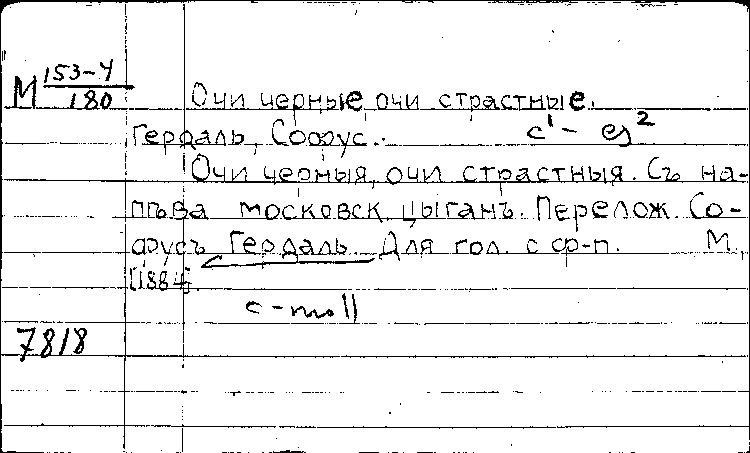 М 153-4/180
Очи черные, очи страстные.
Гердаль, Софус.
c¹ - es²
Очи черныя, очи страстныя. Съ на-
пѣва московск. цыганъ. Перелож. Со-
фусъ Гердаль. Для гол. с ф-п. М.,
[1884].
c-moll
7818